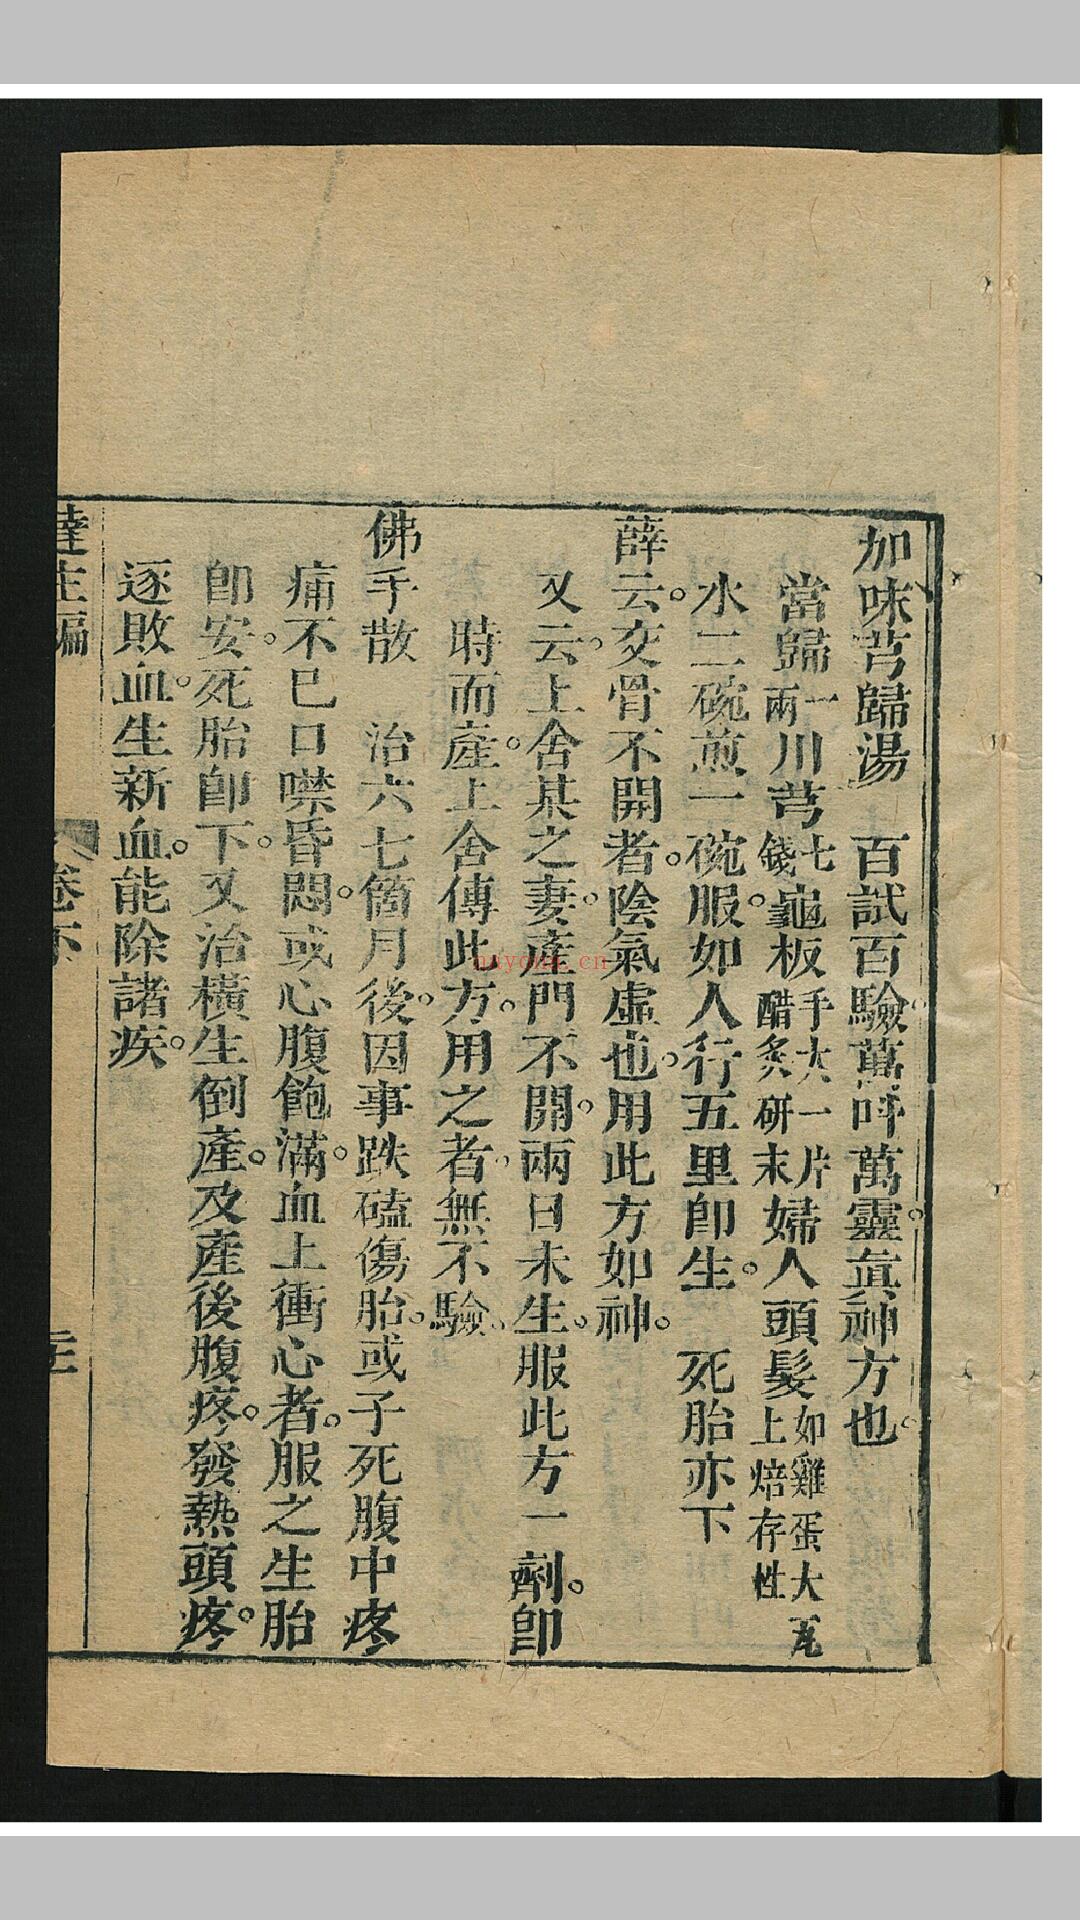 加味芎歸湯　百試百驗萬呼萬靈眞神方也。
當歸一兩川芎七錢。龜板手大一片醋炙研末婦人頭髮如雞蛋大瓦上焙存性
水二碗煎一碗服如人行五里卽生。死胎亦下
薛云。交骨不開者。陰氣虛也。用此方如神。
又云。上舍某之妻。產門不開。兩日未生。服此方一劑。卽
時而產。上舍傳此方。用之者。無不驗。
佛手散　治六七箇月後。因事跌磕傷胎。或子死腹中疼
痛不已口噤昏悶。或心腹飽滿。血上衝心者。服之生胎
卽安。死胎卽下。又治橫生倒產。及產後腹疼。發熱頭疼。
逐敗血。生新血。能除諸疾。
達生編　卷下
nayona.cn